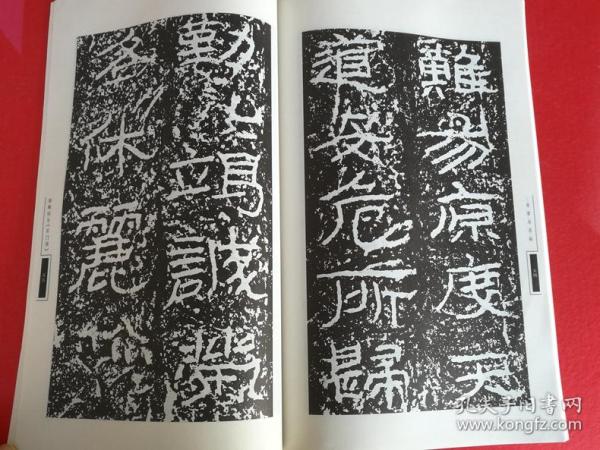 難易原度天
道安危所歸
勤〻竭誠榮
名休麗
孔夫子旧书网
www.kongfz.com